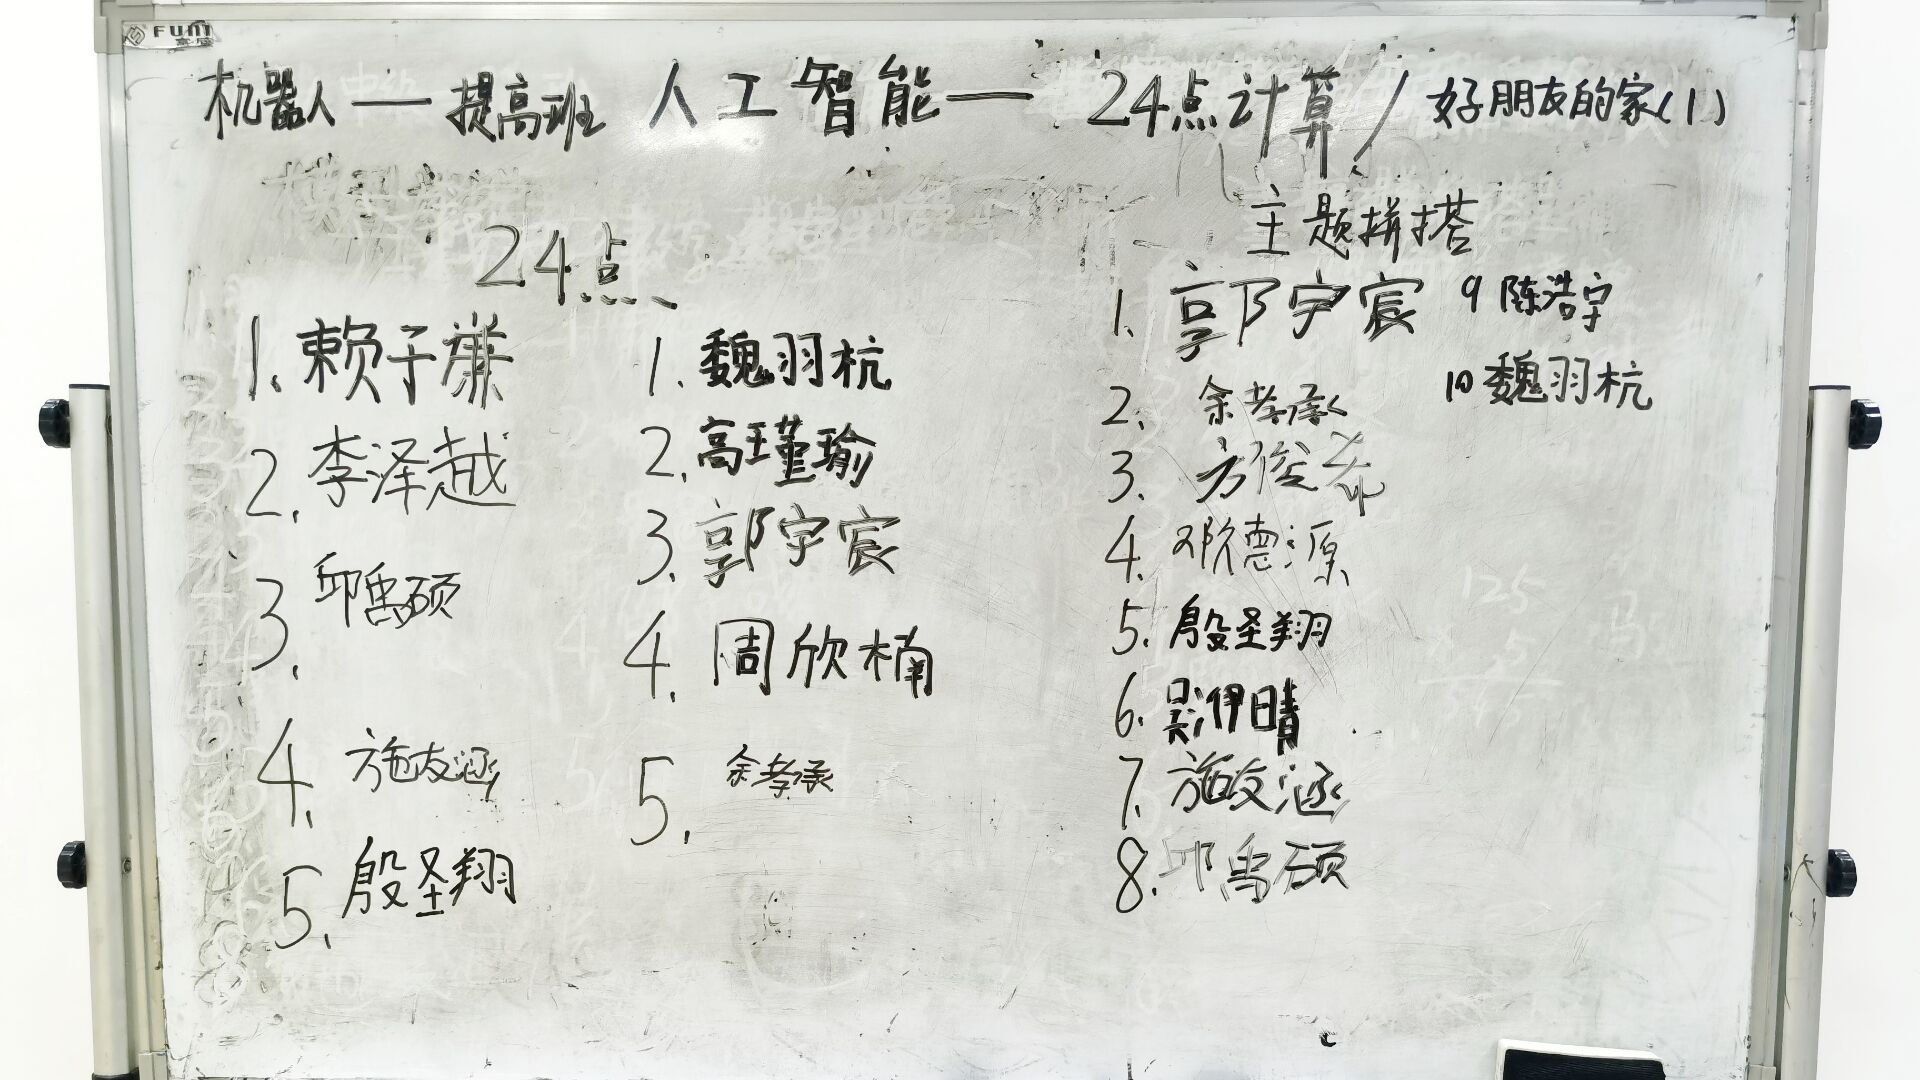 FUNI
机器人——提高班 人工智能—— 24点计算/好朋友的家(1)
24点
1.赖子谦
2.李泽越
3.邱禹硕
4.施友涵
5.殷圣翔
1.魏羽杭
2.高瑾瑜
3.郭宇宸
4.周欣楠
5.余孝承
主题拼搭
1.郭宇宸
2.余孝承
3.方俊希
4.邓德源
5.殷圣翔
6.吴伊晴
7.施友涵
8.邱禹硕
9 陈浩宇
10 魏羽杭